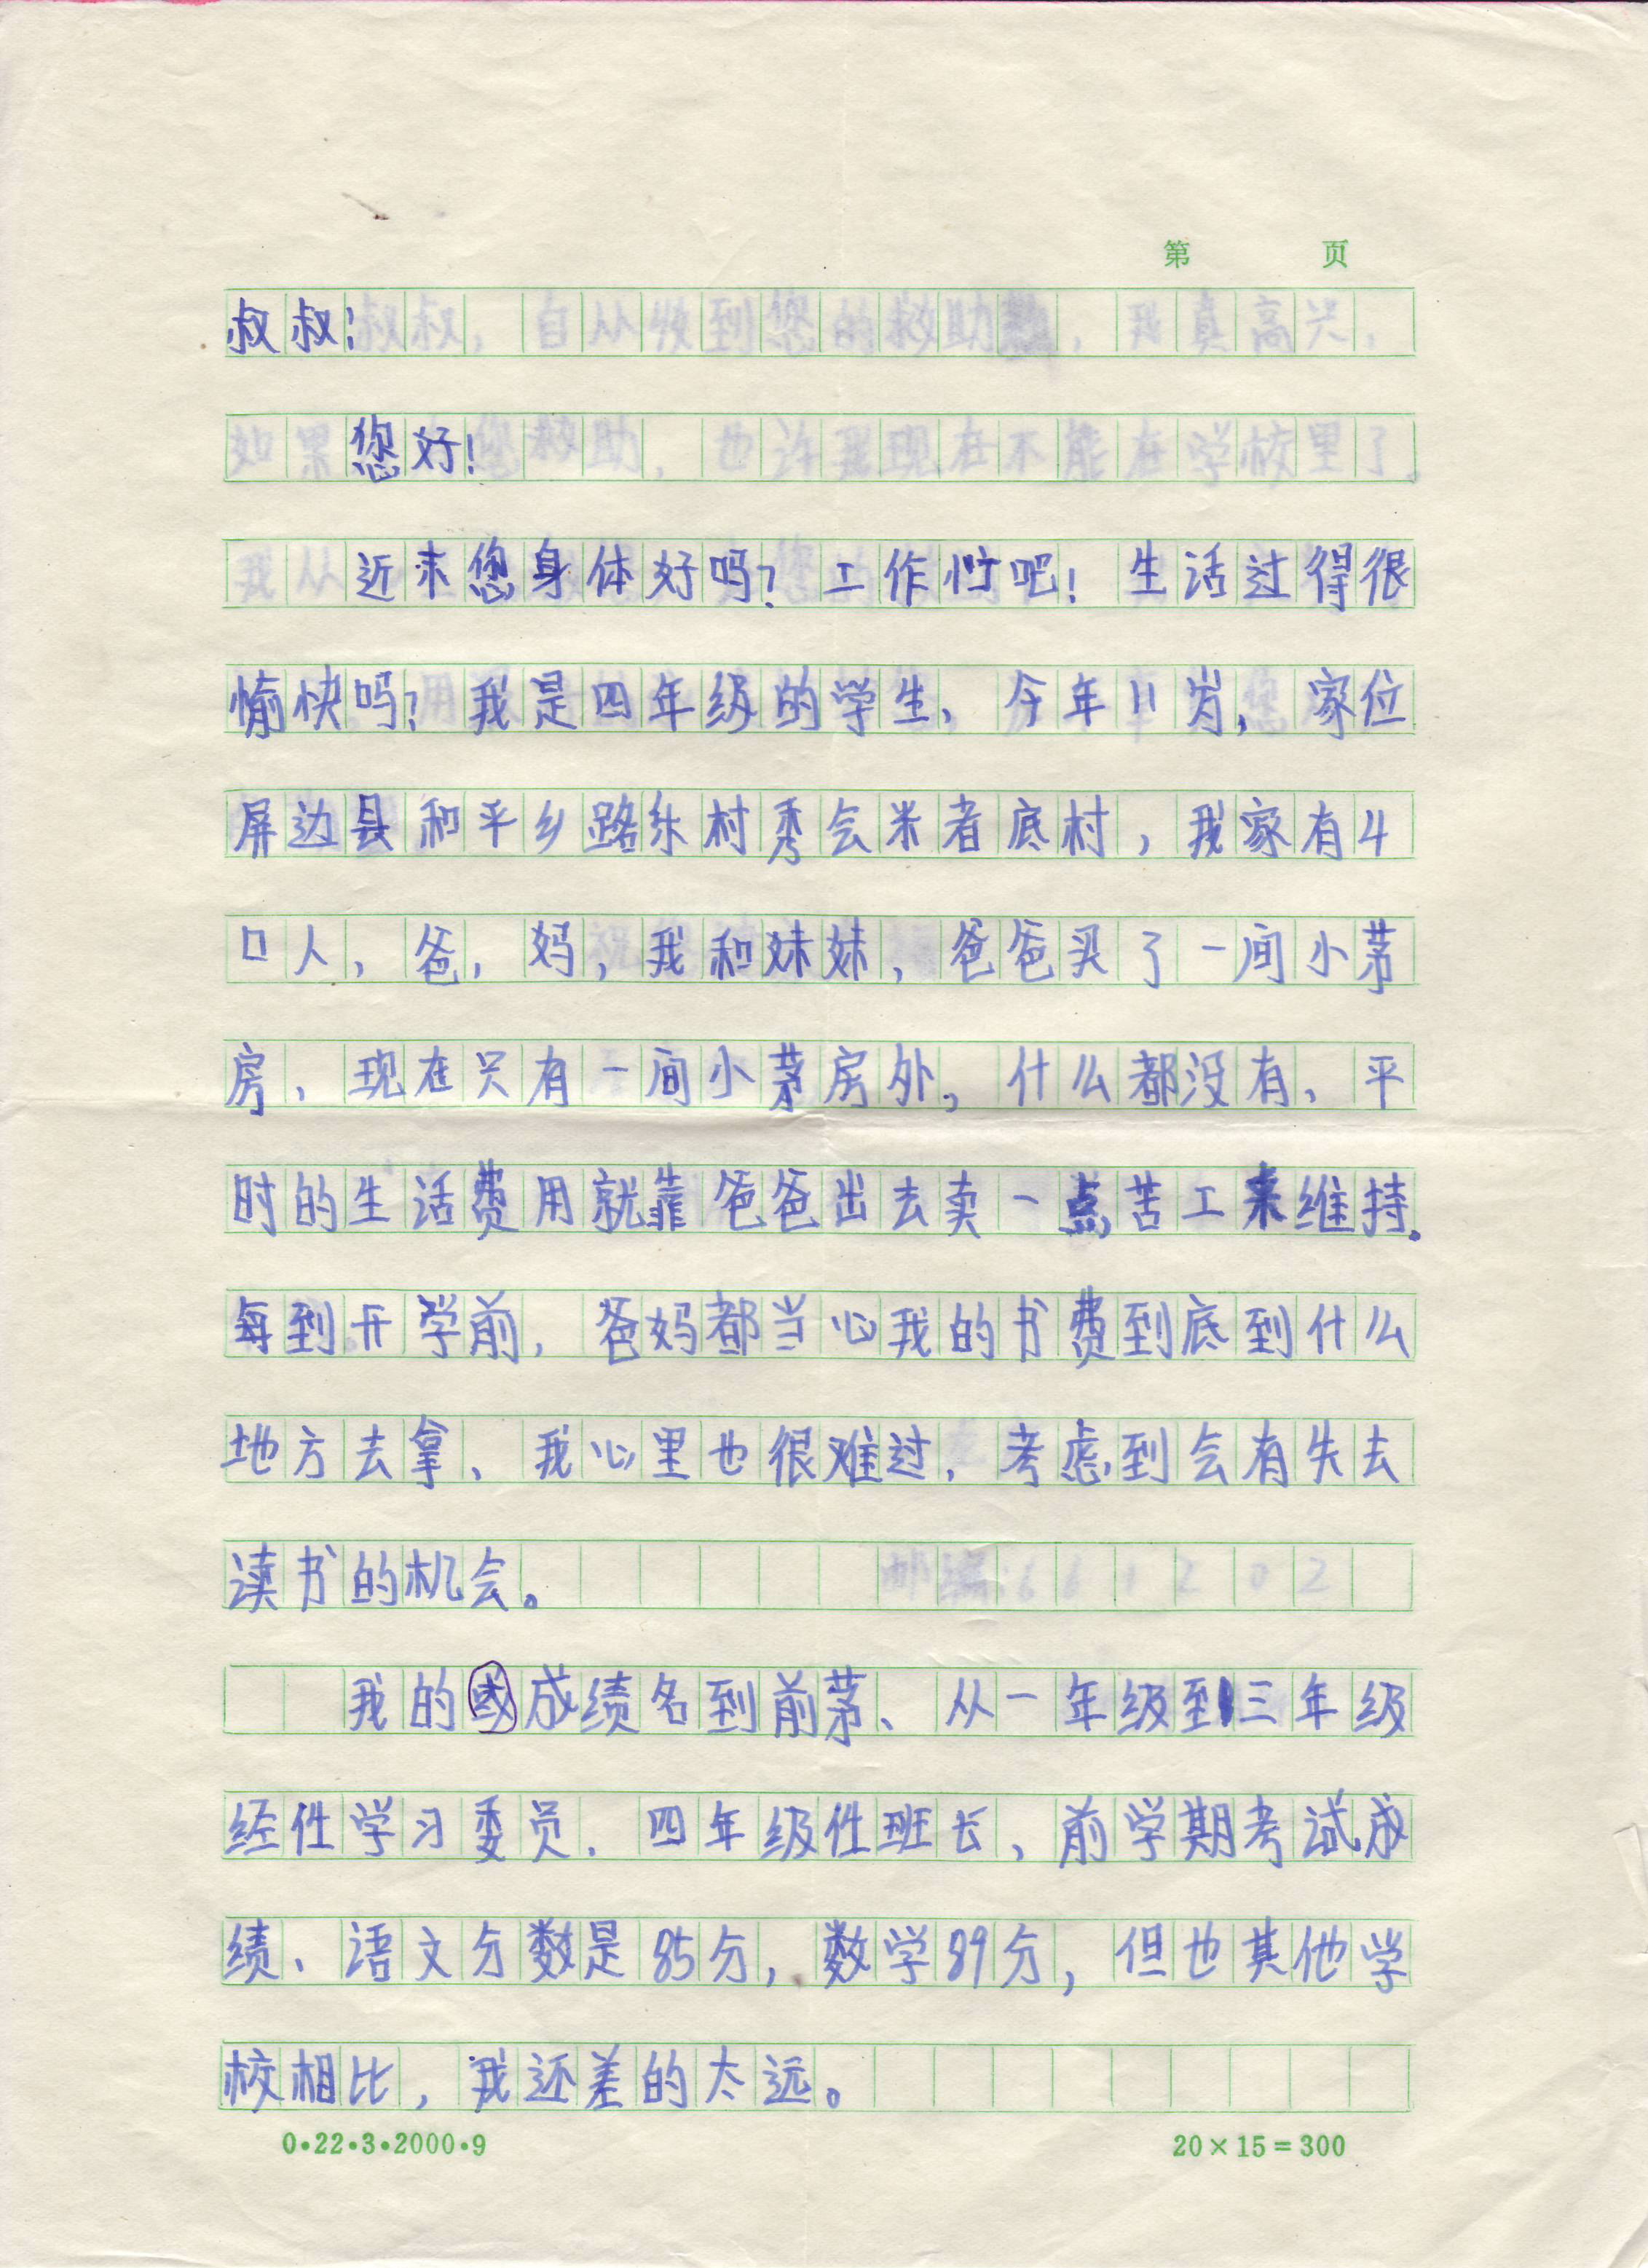 第 页
叔叔：
您好！
近来您身体好吗？工作忙吧！生活过得很
愉快吗？我是四年级的学生、今年11岁，家位
屏边县和平乡路乐村秀会米者底村，我家有4
口人，爸，妈，我和妹妹，爸爸买了一间小茅
房、现在只有一间小茅房外，什么都没有、平
时的生活费用就靠爸爸出去卖一点苦工来维持。
每到开学前，爸妈都当心我的书费到底到什么
地方去拿、我心里也很难过，考虑到会有失去
读书的机会。
我的成绩名到前茅、从一年级到三年级
经任学习委员．四年级任班长、前学期考试成
绩、语文分数是85分，数学89分，但也其他学
校相比，我还差的太远。
0·22·3·2000·9 20×15=300